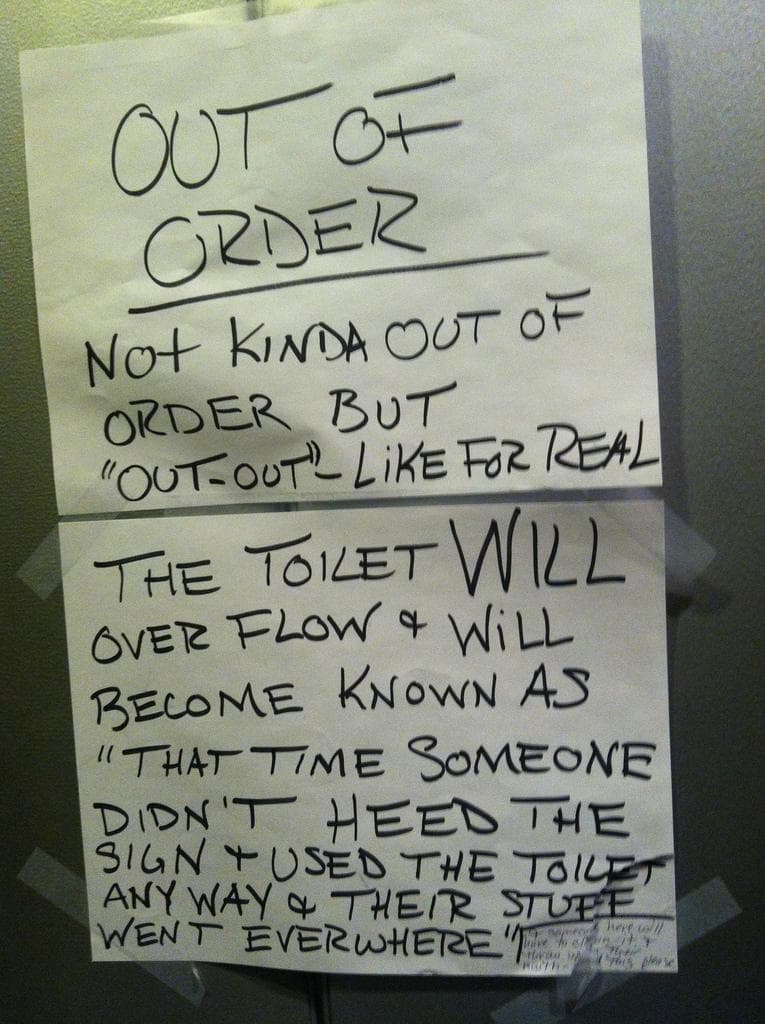 OUT OF
ORDER
NOT KINDA OUT OF
ORDER BUT
"OUT-OUT"- LIKE FOR REAL
THE TOILET WILL
OVER FLOW & WILL
BECOME KNOWN AS
"THAT TIME SOMEONE
DIDN'T HEED THE
SIGN & USED THE TOILET
ANY WAY & THEIR STUFF
WENT EVERWHERE"
someone here will
have to clean it &
throw up in their
mouth this please